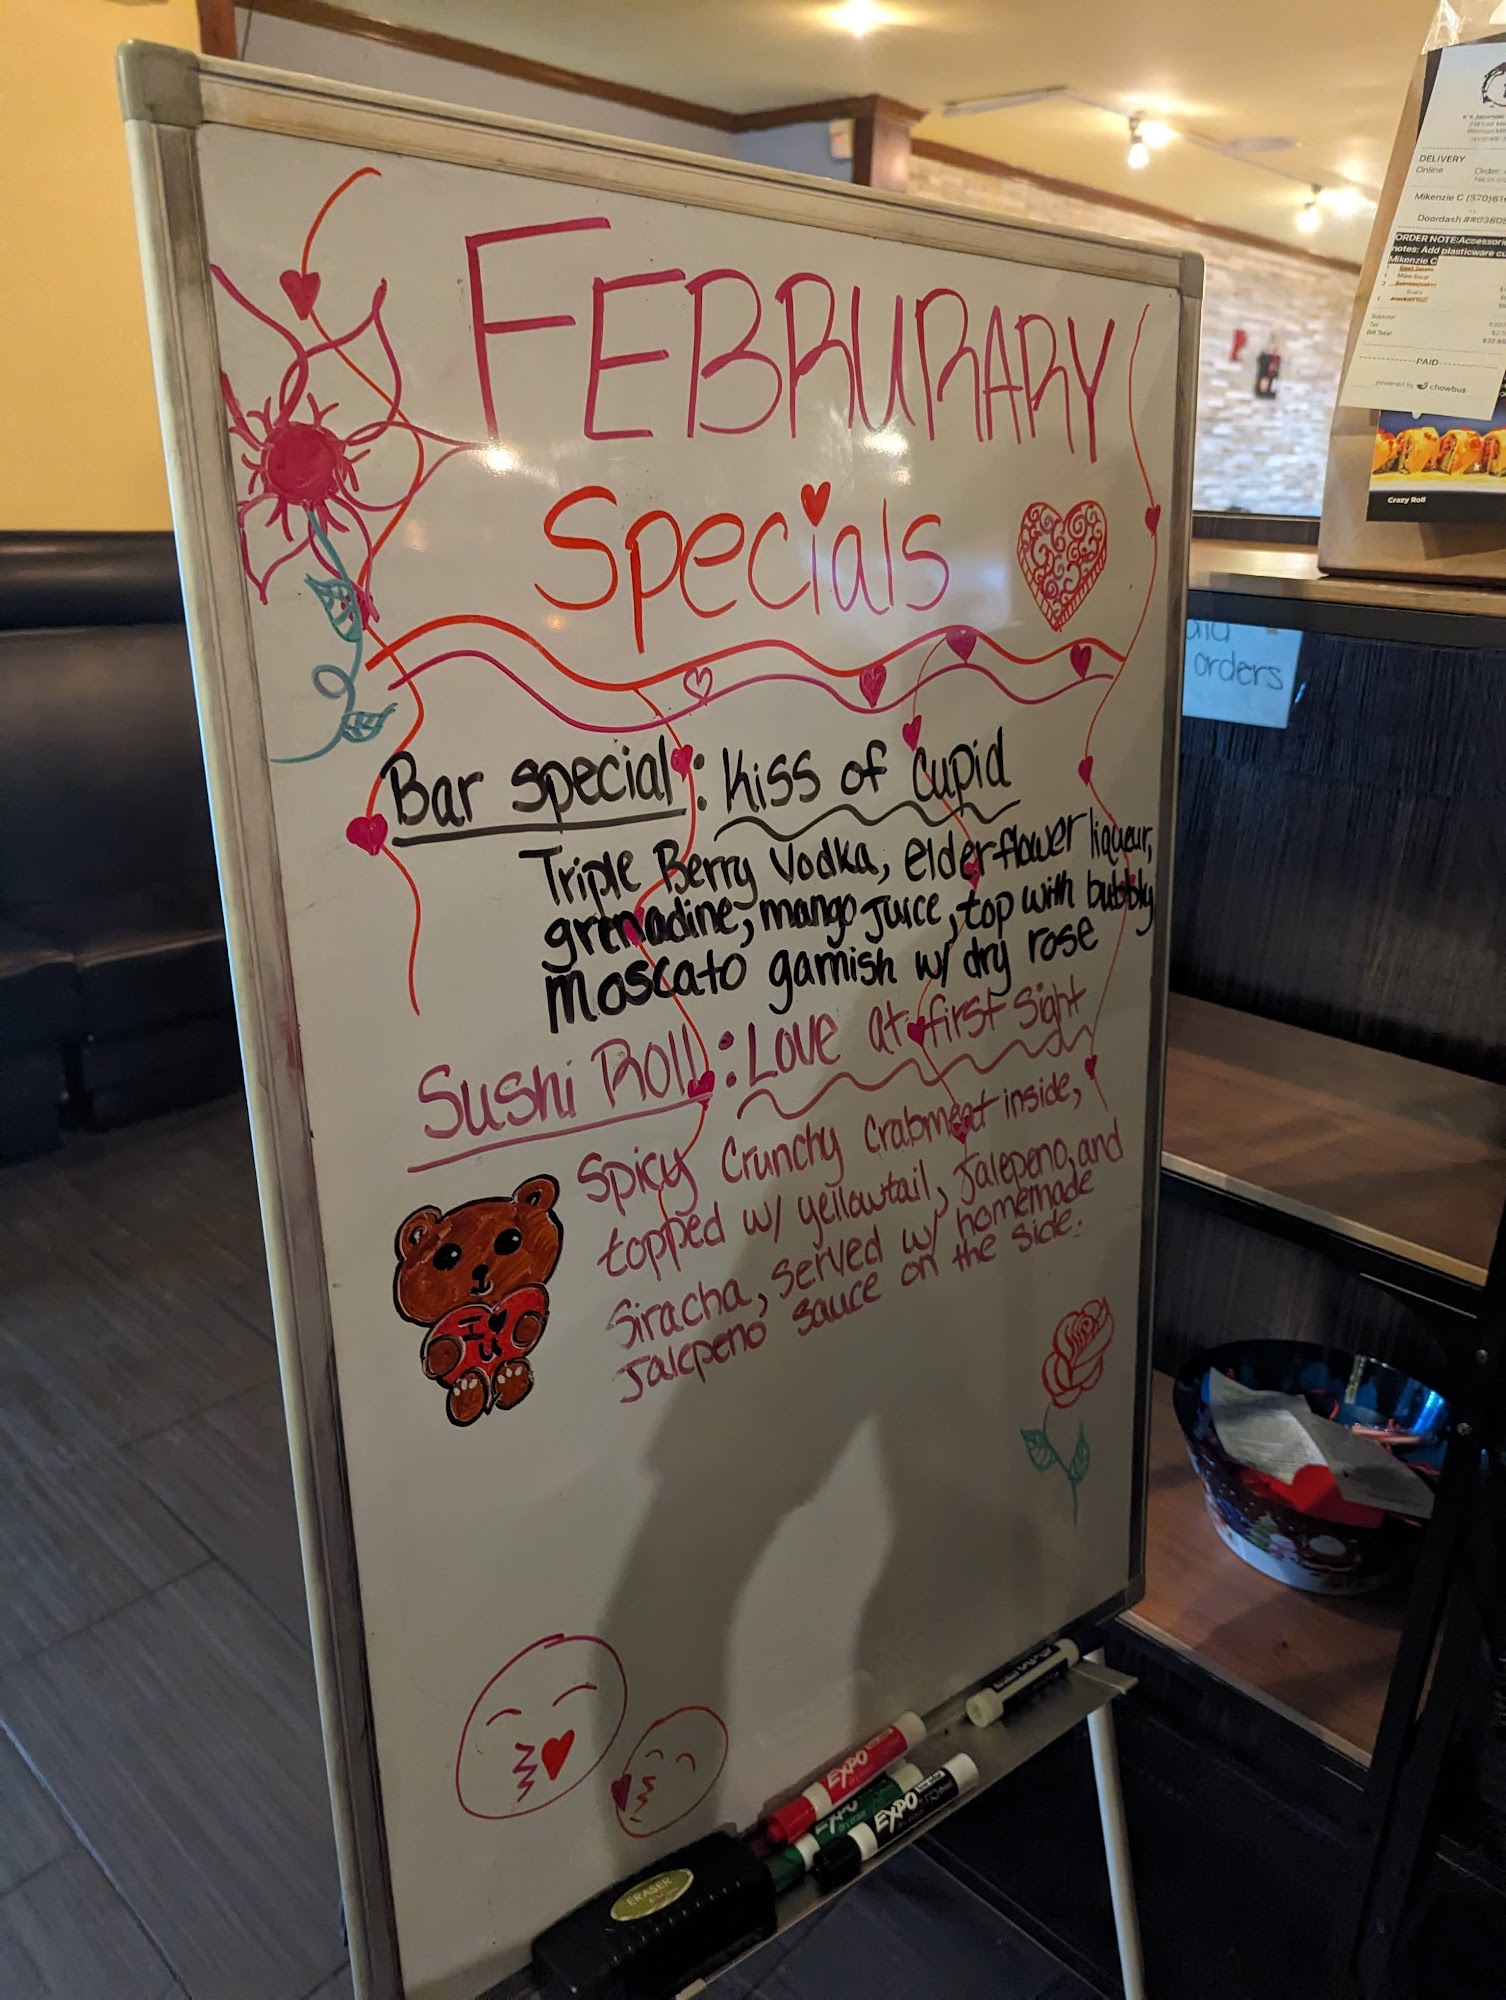 FEBRURARY
Specials
Bar special: Kiss of Cupid
Triple Berry Vodka, elderflower liqueur,
grenadine, mango juice, top with bubbly
moscato garnish w/ dry rose
Sushi Roll: Love at first sight
Spicy Crunchy Crabmeat inside,
topped w/ yellowtail, Jalepeno, and
Siracha, served w/ homemade
Jalepeno sauce on the side.
I
U
EXPO
EXPO
EXPO
ERASER
DELIVERY
Online Order:
Mikenzie C (570)
Doordash
ORDER NOTE: Accessori
notes: Add plasticware
Mikenzie C
Subtotal
Tax
Bill Total
PAID
powered by chowbus
Crazy Roll
orders